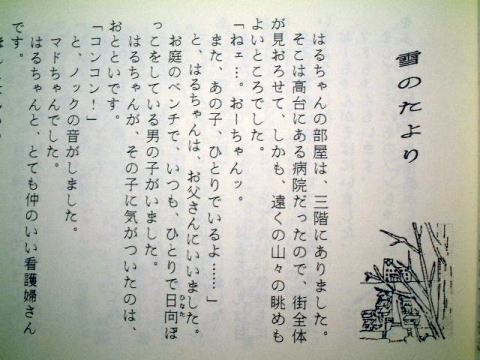 雪のたより
はるちゃんの部屋は、三階にありました。
そこは高台にある病院だったので、街全体
が見おろせて、しかも、遠くの山々の眺めも
よいところでした。
「ねェ…。おーちゃんッ。
また、あの子、ひとりでいるよ……」
と、はるちゃんは、お父さんにいいました。
お庭のベンチで、いつも、ひとりで日向ぼ
っこをしている男の子がいました。
はるちゃんが、その子に気がついたのは、
おとといです。
「コンコン！」
と、ノックの音がしました。
マドちゃんでした。
はるちゃんと、とても仲のいい看護婦さん
です。